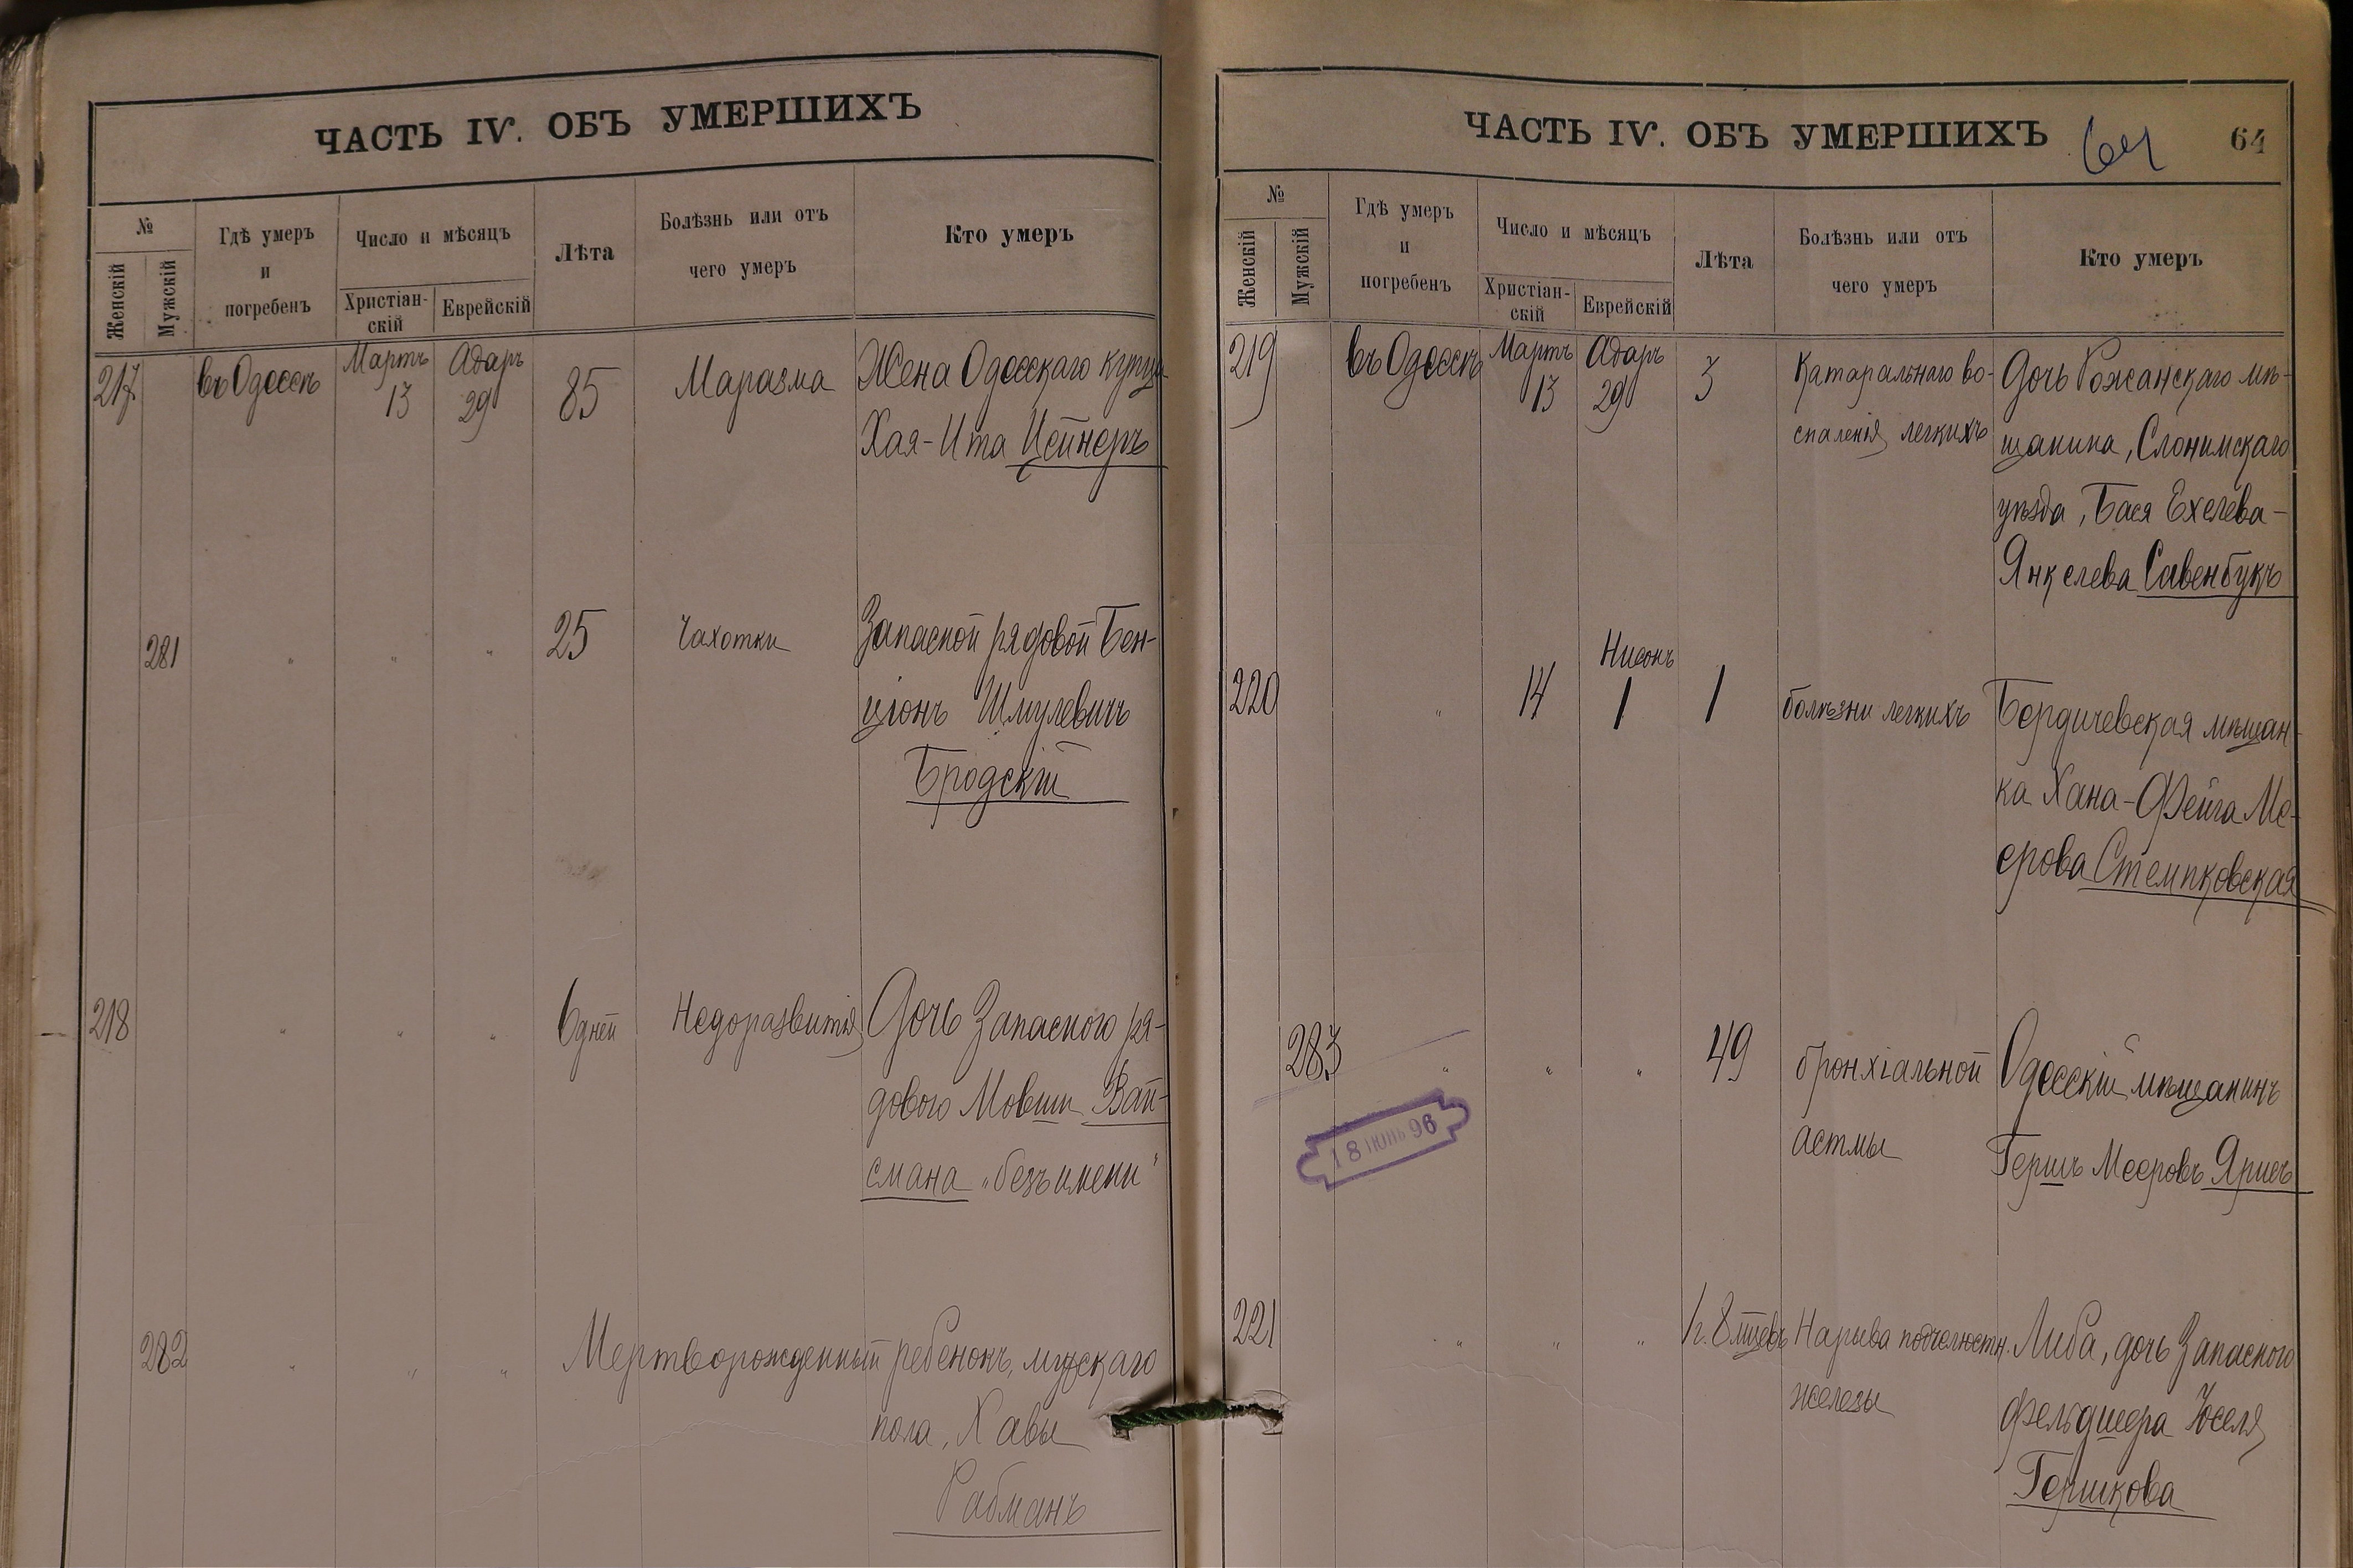 ЧАСТЬ IV. ОБЪ УМЕРШИХЪ
№
Женскій
Мужскій
Гдѣ умеръ
и
погребенъ
Число и мѣсяцъ
Христіан-
скій
Еврейскій
Лѣта
Болѣзнь или отъ
чего умеръ
Кто умеръ
217
въ Одессѣ
Мартъ
13
Адаръ
29
85
Маразма
Жена Одесскаго купца
Хая-Ита Цейнеръ
281
"
"
"
25
Чахотки
Запасной рядовой Бен-
ціонъ Шмулевичъ
Бродскій
218
"
"
"
6 дней
Недоразвитія
Дочь Запасного ря-
дового Мовши Вай-
смана „безъ имени"
282
"
"
"
Мертворожденный ребенокъ, мужскаго
пола, Хавы
Рабманъ
ЧАСТЬ IV. ОБЪ УМЕРШИХЪ
64
64
№
Женскій
Мужскій
Гдѣ умеръ
и
погребенъ
Число и мѣсяцъ
Христіан-
скій
Еврейскій
Лѣта
Болѣзнь или отъ
чего умеръ
Кто умеръ
219
въ Одессѣ
Мартъ
13
Адаръ
29
3
Катаральнаго во-
спаленія легкихъ
Дочь Рожанскаго мѣ-
щанина, Слонимскаго
уѣзда, Бася Ехелева-
Янкелева Савенбукъ
220
"
14
Нисонъ
1
1
болѣзни легкихъ
Бердичевская мѣщан-
ка Хана-Фейга Ме-
ерова Стемпковская
283
"
"
"
49
бронхіальной
астмы
Одесскій мѣщанинъ
Гершъ Мееровъ Яришъ
18 ІЮНЬ 96
221
"
"
"
1 г. 8 мѣцевъ
Нарыва подчелюстн.
железы
Либа, дочь Запасного
фельдшера Іоселя
Гершкова